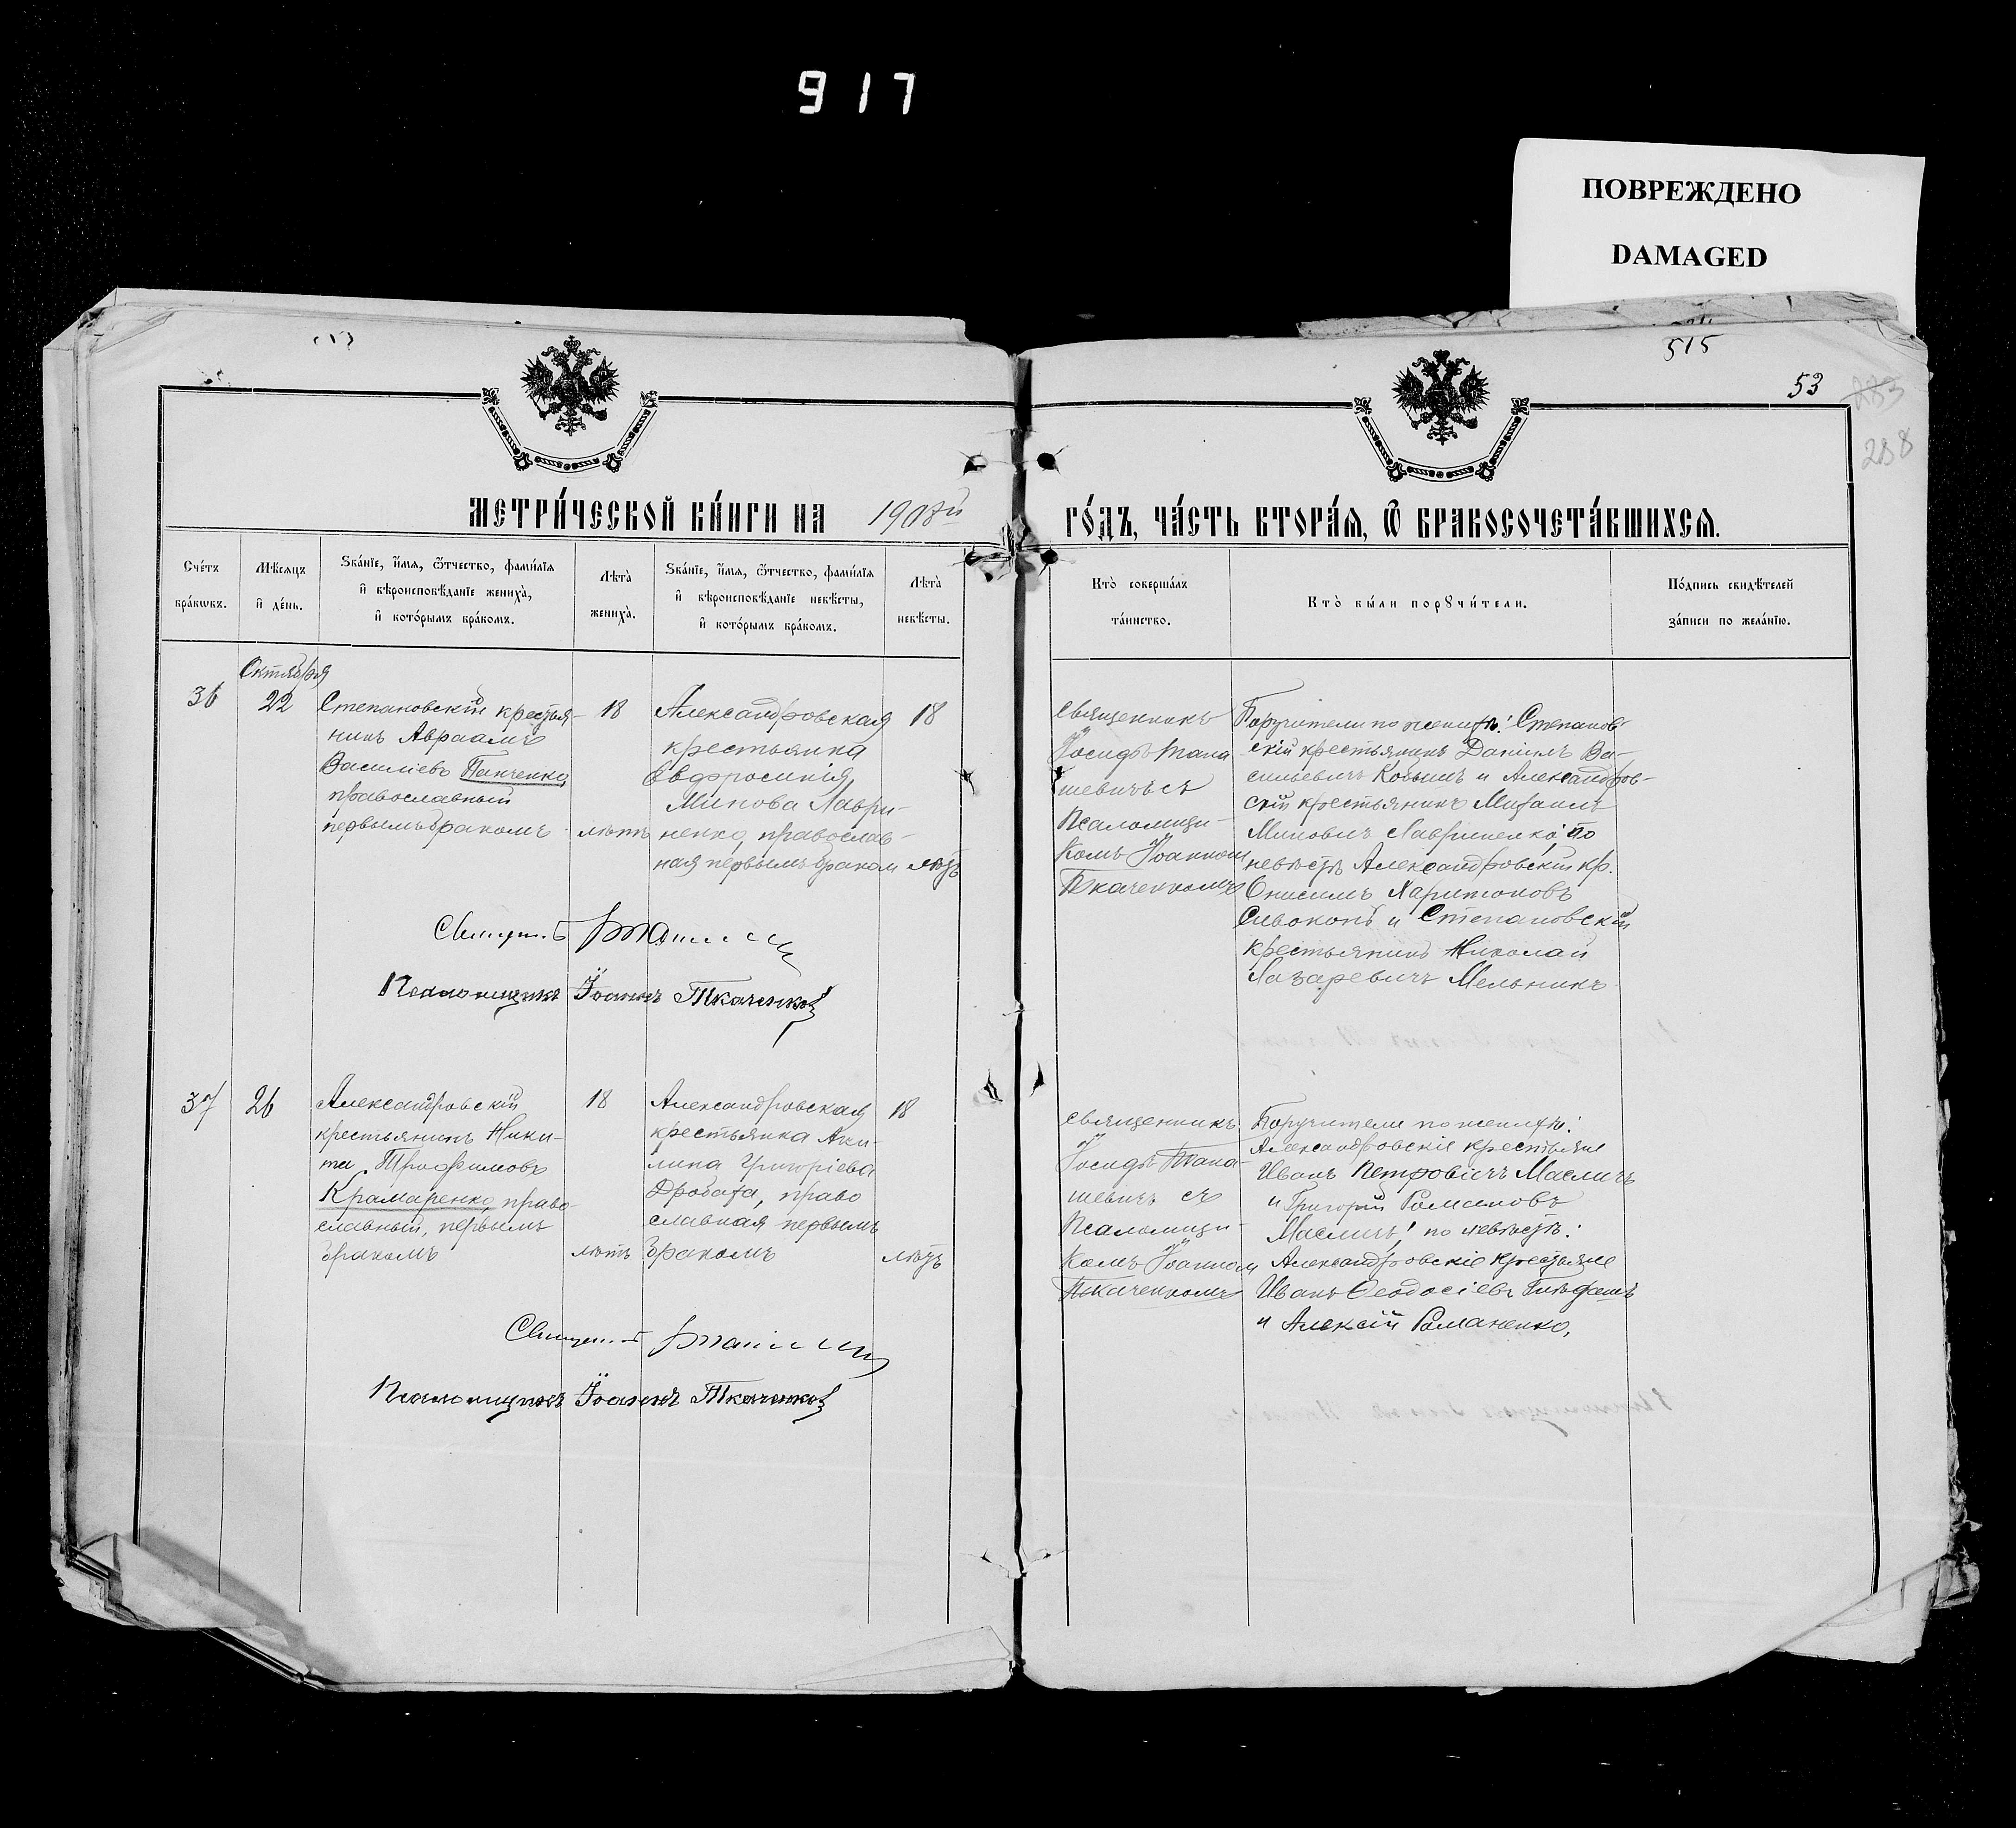 917
ПОВРЕЖДЕНО
DAMAGED
515
53
283
288
МЕТРИ́ЧЕСКОЙ КНИ́ГИ НА 1908й ГО́ДЪ, ЧА́СТЬ ВТОРА́Ѧ, Ѽ БРАКОСОЧЕТА́ВШИХСѦ.
Сче́тъ
бра́кѡвъ.
Мѣсѧцъ
и҆ де́нь.
Ѕва́нїе, и҆́мѧ, ѻ҆́тчество, фами́лїѧ
и҆ вѣроисповѣ́данїе жениха̀,
и҆ кото́рымъ бра́комъ.
Лѣта̀
жениха̀.
Ѕва́нїе, и҆́мѧ, ѻ҆́тчество, фами́лїѧ
и҆ вѣроисповѣ́данїе невѣ́сты,
и҆ кото́рымъ бра́комъ.
Лѣта̀
невѣ́сты.
Кто̀ соверша́лъ
та́инство.
Кто̀ бы́ли порꙋчи́тели.
По́дпись свидѣ́телей
за́писи по жела́нїю.
36
Октября
22
Степановскій крестья-
нинъ Авраамъ
Василіевъ Панченко,
православный
первымъ бракомъ
18
лѣтъ
Александровская
крестьянка
Евфросинія
Минова Лаври-
ненко, православ-
ная первымъ браком
18
лѣтъ
священникъ
Іосифъ Тана
шевичъ съ
Псаломщи-
комъ Іоанном
Ткаченкомъ
Поручители по женихѣ: Степанов
скій крестьянинъ Даніилъ Ва-
сильевичъ и Александров-
скій крестьянинъ Михаилъ
Миновичъ Лавриненко; по
невѣстѣ Александровскій кр.
Онисимъ Харитоновъ
Сивоконь и Степановскій
крестьянинъ Николай
Лазаревичъ Мельникъ
Священ.
Псаломщикъ Іоаннъ Ткаченко
37
26
Александровскій
крестьянинъ Ники-
та Трофимовъ
Крамаренко, право-
славный, первымъ
бракомъ
18
лѣтъ
Александровская
крестьянка Аки-
лина Григоріева
Дробаха, право
славная первымъ
бракомъ
18
лѣтъ
священникъ
Іосифъ Тана-
шевичъ съ
Псаломщи-
комъ Іоанном
Ткаченкомъ
Поручители по женихѣ:
Александровскіе крестьяне
Иванъ Петровичъ Масличъ
и Григорій Романовъ
Масличъ; по невѣстѣ:
Александровскіе крестьяне
Иванъ Ѳеодосіевъ
и Алексій Романенко,
Священ.
Псаломщикъ Іоаннъ Ткаченко